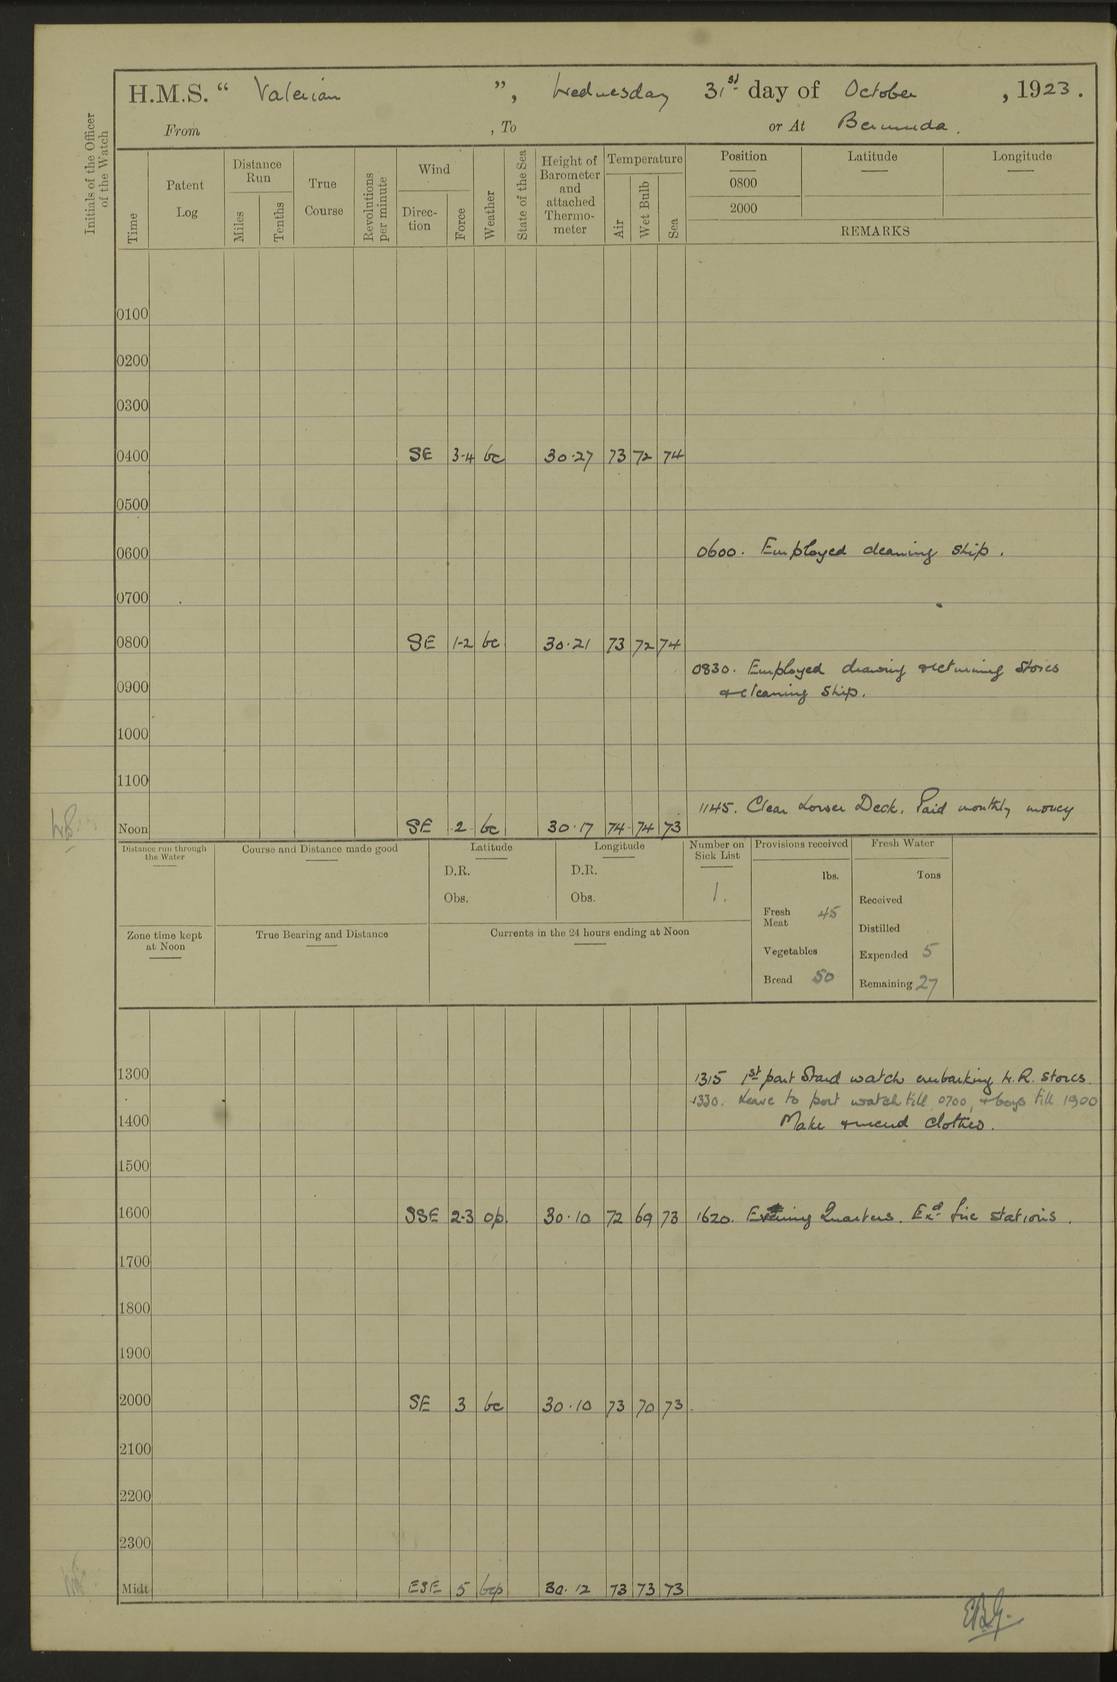 H.M.S. “ Valerian ”, Wednesday 31st day of October , 1923.
From , To or At Bermuda.
Initials of the Officer of the Watch
Time
Patent Log
Distance Run
Miles
Tenths
True Course
Revolutions per minute
Wind
Direc-tion
Force
Weather
State of the Sea
Height of Barometer and attached Thermo-meter
Temperature
Air
Wet Bulb
Sea
Position Latitude Longitude
0800
2000
REMARKS
0100
0200
0300
0400 SE 3-4 bc 30·27 73 72 74
0500
0600 0600. Employed cleaning ship.
0700
0800 SE 1-2 bc 30·21 73 72 74
0830. Employed drawing & returning stores
0900 & cleaning ship.
1000
1100
1145. Clear Lower Deck. Paid monthly money
Noon SE 2 bc 30·17 74 74 73
Distance run through the Water
Course and Distance made good
Latitude
D.R.
Obs.
Longitude
D.R.
Obs.
Number on Sick List
1.
Provisions received
lbs.
Fresh Meat 45
Vegetables
Bread 50
Fresh Water
Tons
Received
Distilled
Expended 5
Remaining 27
Zone time kept at Noon
True Bearing and Distance
Currents in the 24 hours ending at Noon
1300 1315 1st part Stard watch embarking W.R. stores.
1330. Leave to port watch till 0700, & boys till 1900
1400 Make & mend clothes.
1500
1600 SSE 2-3 op. 30·10 72 69 73 1620. Evening Quarters. Exd fire stations.
1700
1800
1900
2000 SE 3 bc 30·10 73 70 73
2100
2200
2300
Midt ESE 5 bcp 30·12 73 73 73